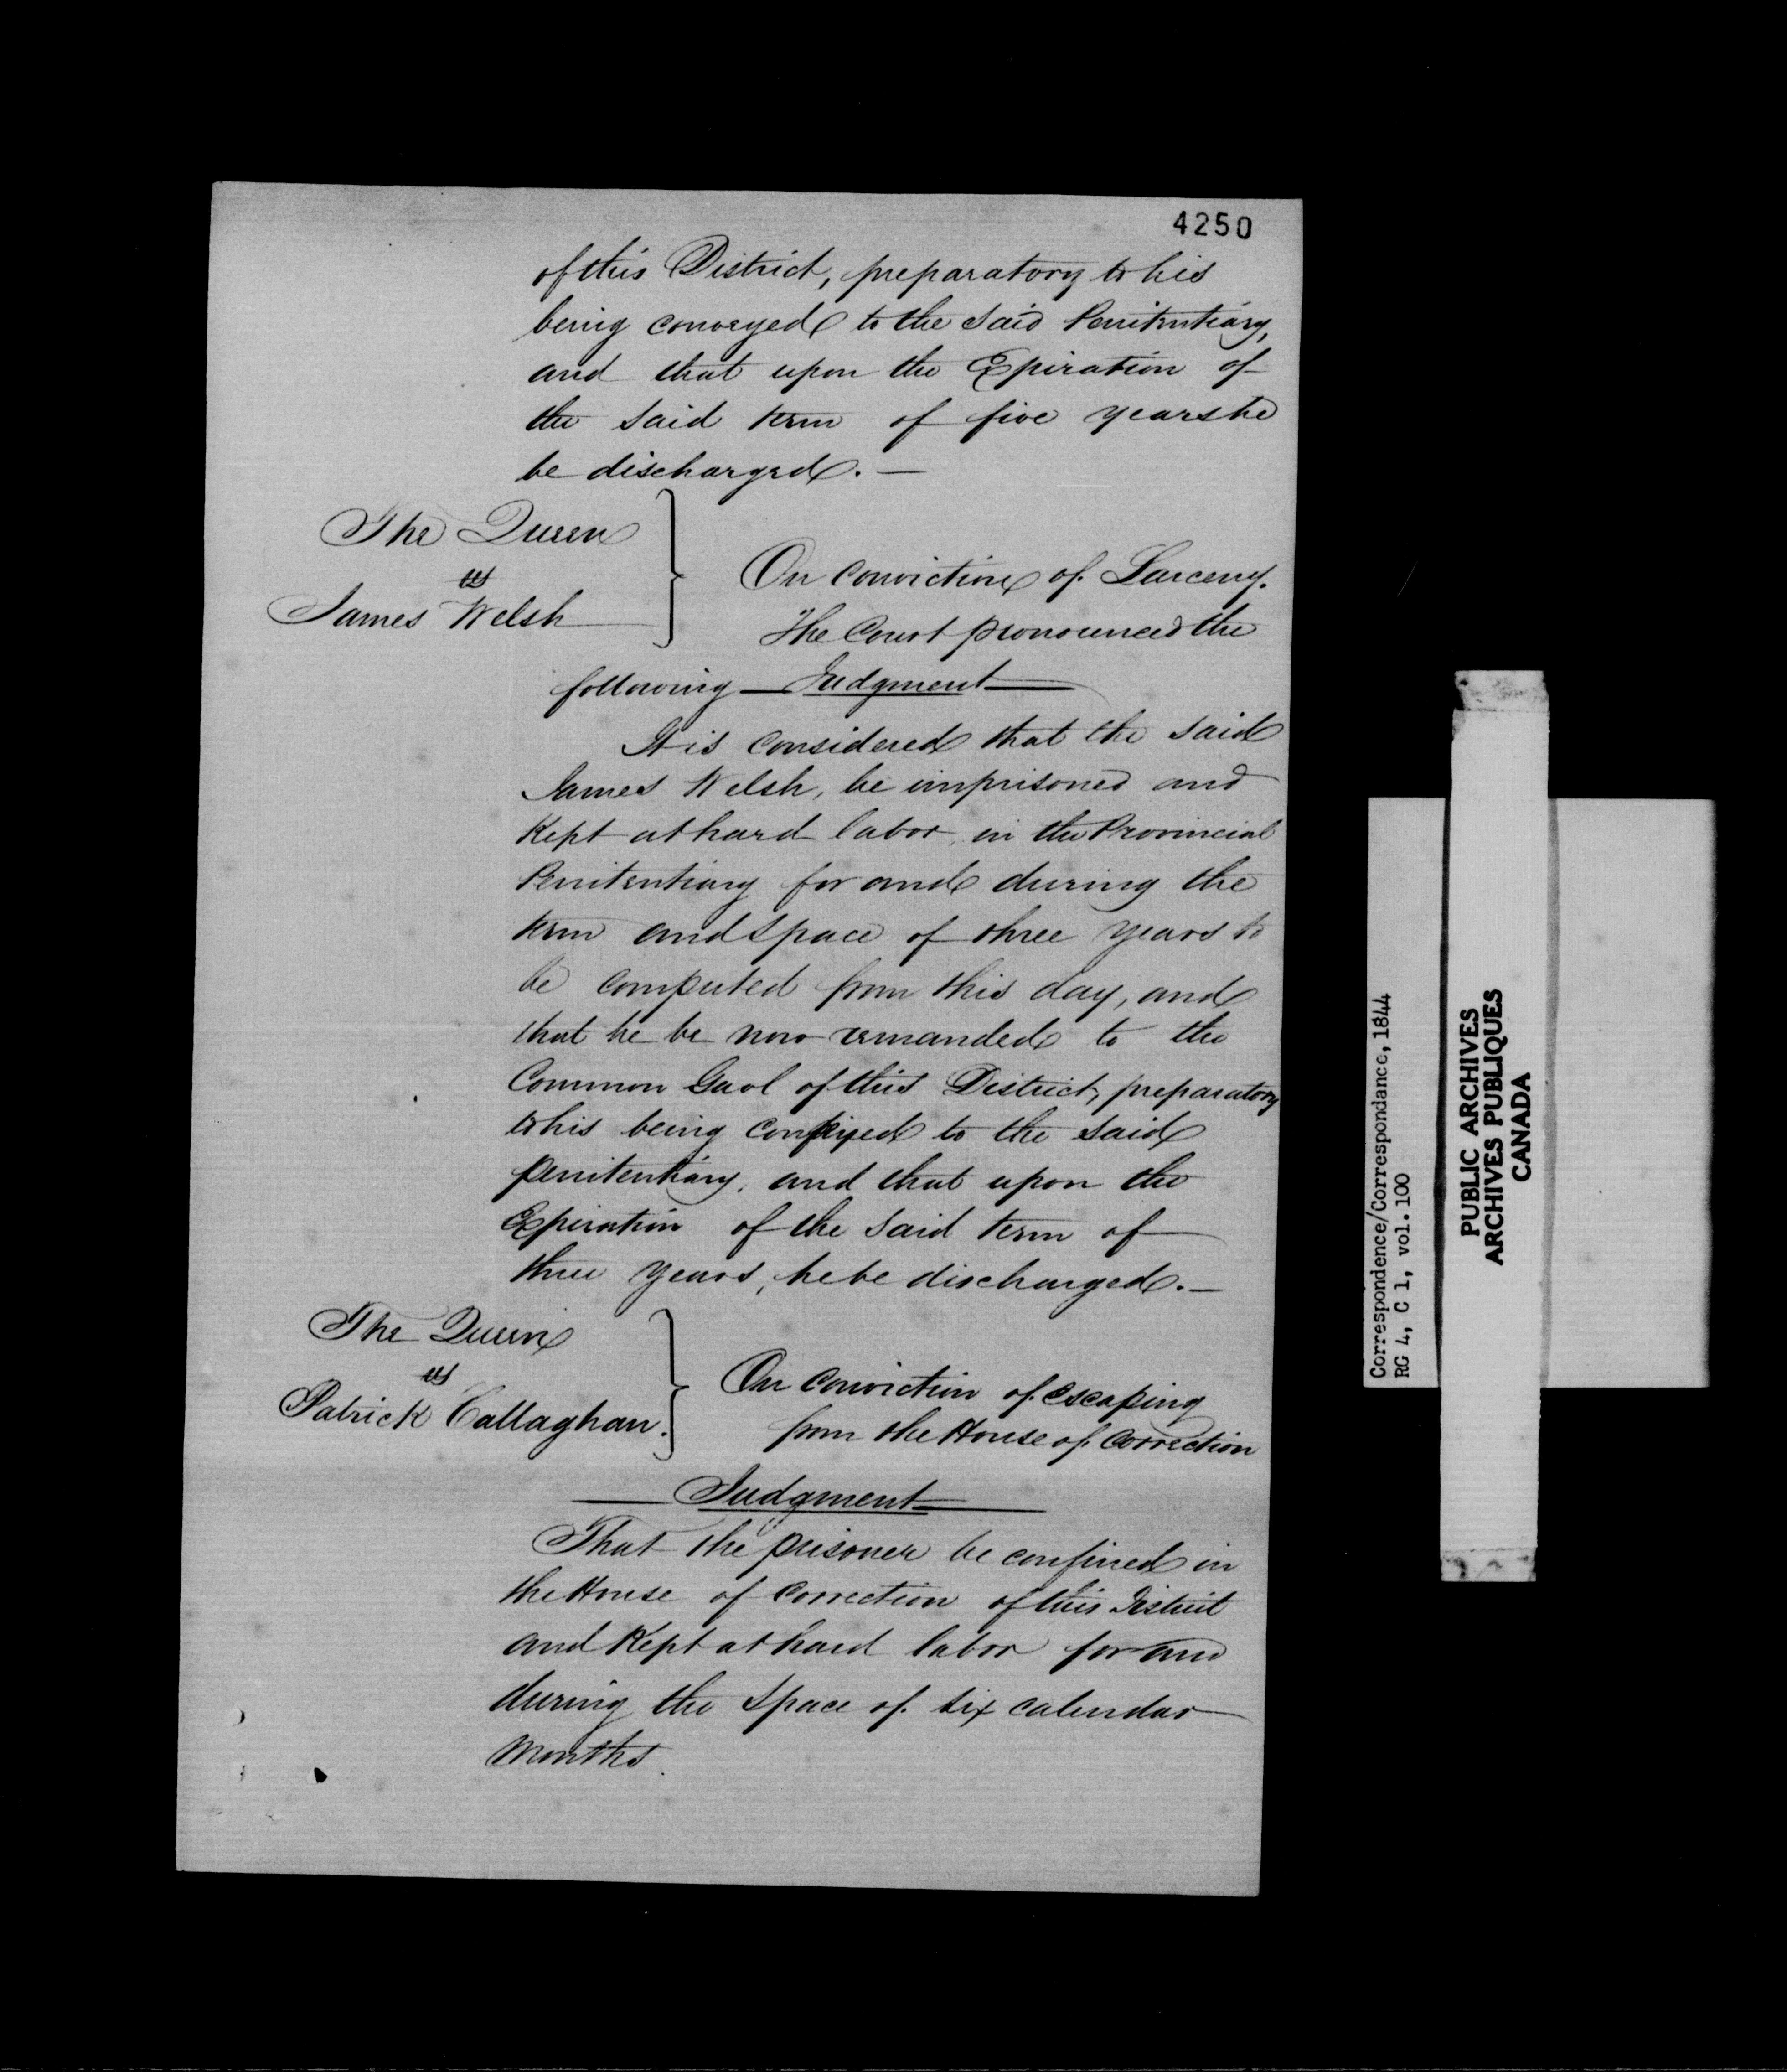 4250
of this District, preparatory to his
being conveyed to the said Penitentiary,
and that upon the Expiration of
the said term of five years he
be discharged. —
The Queen
vs
James Welsh
On conviction of Larceny.
The Court pronounced the
following — Judgment —
It is considered that the said
James Welsh, be imprisoned and
Kept at hard labor, in the Provincial
Penitentiary for and during the
term and space of three years to
be computed from this day, and
that he be now remanded to the
Common Gaol of this District, preparatory
to his being to the said
penitentiary, and that upon the
Expiration of the said term of
three years, he be discharged. —
The Queen
vs
Patrick Callaghan.
On conviction of escaping
from the House of Correction
— Judgment —
That the prisoner be confined in
the House of Correction of this District
and Kept at hard labor for and
during the space of six calendar
Months.
Correspondence/Correspondance, 1844
RG 4, C 1, vol. 100
PUBLIC ARCHIVES
ARCHIVES PUBLIQUES
CANADA